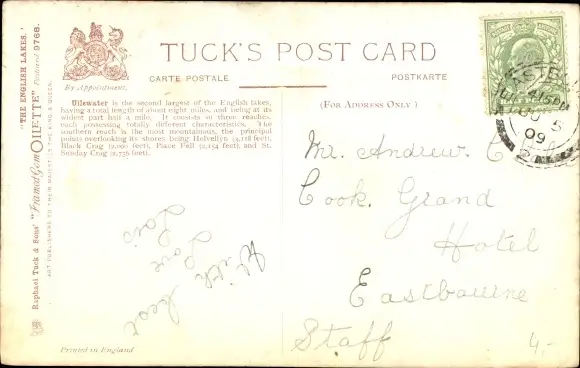 "THE ENGLISH LAKES."
"Framed Gem OILETTE" Postcard 9768.
Raphael Tuck & Sons'
ART PUBLISHERS TO THEIR MAJESTIES THE KING & QUEEN.
By Appointment.
TUCK'S POST CARD
CARTE POSTALE
POSTKARTE
Ullswater is the second largest of the English lakes,
having a total length of about eight miles, and being at its
widest part half a mile. It consists of three reaches,
each possessing totally different characteristics. The
southern reach is the most mountainous, the principal
points overlooking its shores being Helvellyn (3,118 feet),
Black Crag (2,000 feet), Place Fell (2,154 feet), and St.
Sunday Crag (2,756 feet).
With best
Love
Lois
Printed in England
(FOR ADDRESS ONLY)
Mr. Andrew. C
Cook. Grand
Hotel
Eastbourne
Staff
4,-
EASTBOU
4 15 PM
5
09
2